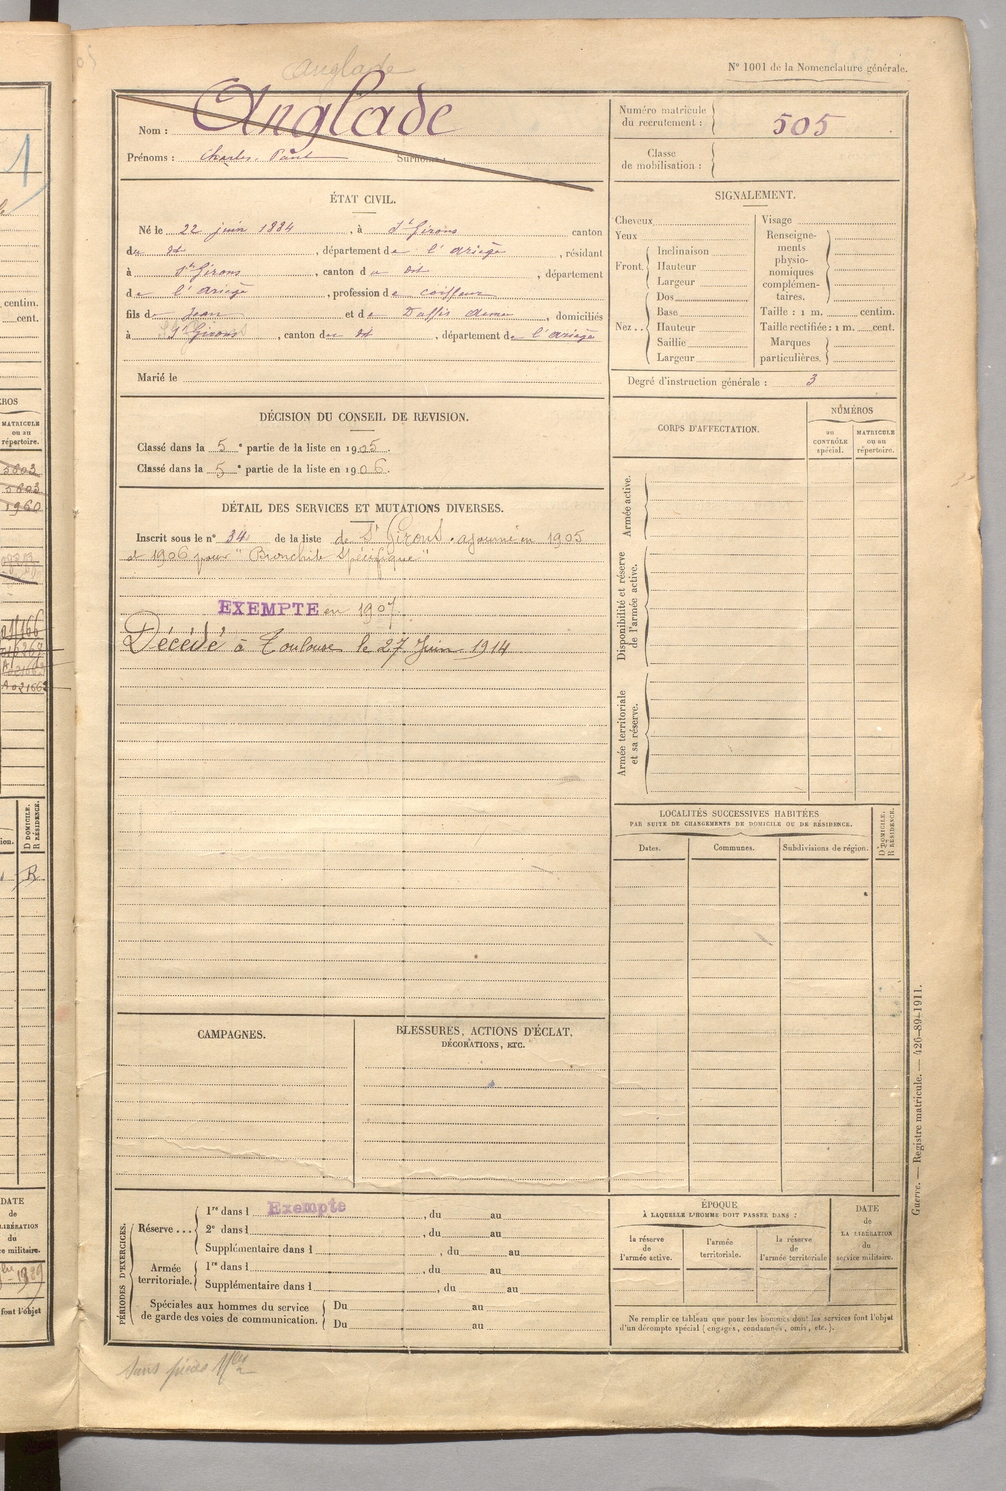 Anglade
N° 1001 de la Nomenclature générale.
Nom : Anglade
Prénoms : Charles. Paul Surnoms :
Numéro matricule du recrutement : 505
Classe de mobilisation :
ÉTAT CIVIL.
Né le 22 juin 1884, à St Girons canton
du dt, département de l'ariège, résidant
à St Girons, canton du dt, département
de l'ariège, profession de coiffeur
fils de Jean et de Daffis domiciliés
à St Girons, canton du dt, département de l'ariège
Marié le
SIGNALEMENT.
Cheveux
Yeux
Front. Inclinaison
Hauteur
Largeur
Nez.. Dos
Base
Hauteur
Saillie
Largeur
Visage
Renseignements physionomiques complémentaires.
Taille : 1 m. centim.
Taille rectifiée : 1 m. cent.
Marques particulières.
Degré d'instruction générale : 3
DÉCISION DU CONSEIL DE REVISION.
Classé dans la 5e partie de la liste en 1905.
Classé dans la 5e partie de la liste en 1906.
DÉTAIL DES SERVICES ET MUTATIONS DIVERSES.
Inscrit sous le n° 34 de la liste de St Girons. ajourné en 1905
et 1906 pour "Bronchite Spécifique"
EXEMPTE en 1907.
Décédé à Toulouse le 27 Juin 1914
CORPS D'AFFECTATION.
NUMÉROS
au CONTRÔLE spécial.
MATRICULE ou au répertoire.
Armée active.
Disponibilité et réserve de l'armée active.
Armée territoriale et sa réserve.
LOCALITÉS SUCCESSIVES HABITÉES
PAR SUITE DE CHANGEMENTS DE DOMICILE OU DE RÉSIDENCE.
Dates. Communes. Subdivisions de région.
D DOMICILE.
R RÉSIDENCE.
CAMPAGNES.
BLESSURES, ACTIONS D'ÉCLAT,
DÉCORATIONS, ETC.
PÉRIODES D'EXERCICES.
Réserve ... 1re dans l Exempte, du au
2e dans l, du au
Supplémentaire dans l, du au
Armée territoriale. 1re dans l, du au
Supplémentaire dans l, du au
Spéciales aux hommes du service
de garde des voies de communication.
Du au
Du au
ÉPOQUE
À LAQUELLE L'HOMME DOIT PASSER DANS :
la réserve de l'armée active.
l'armée territoriale.
la réserve de l'armée territoriale
DATE de LA LIBÉRATION du service militaire.
Ne remplir ce tableau que pour les hommes dont les services font l'objet
d'un décompte spécial (engagés, condamnés, omis, etc.).
Guerre. — Registre matricule. — 426-89-1911.